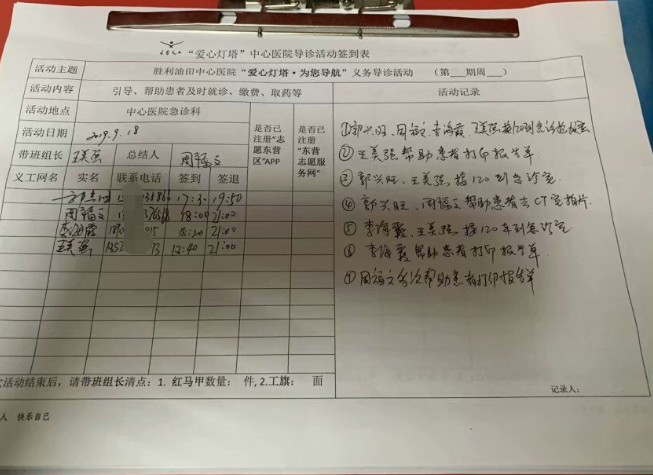 “爱心灯塔”中心医院导诊活动签到表
活动主题 胜利油田中心医院“爱心灯塔·为您导航”义务导诊活动 （第___期周___）
活动内容 引导、帮助患者及时就诊、缴费、取药等 活动记录
活动地点 中心医院急诊科
活动日期 2019.9.18
是否已注册“志愿东营区”APP
是否已注册“东营志愿服务网”
带班组长 王美强 总结人 周福文
义工网名 实名 联系电话 签到 签退
17:30 19:50
周福文 18:00 21:00
李海霞 18:20 21:00
王美强 18:40 21:00
①郭兴旺、周福文、李海霞、王美强接120到急诊
②王美强帮助患者打印报告单
③郭兴旺、王美强接120到急诊室
④郭兴旺、周福文帮助患者去CT室拍片
⑤李海霞、王美强接120车到急诊室
⑥李海霞帮助患者打印报告单
⑦周福文多次帮助患者打印报告单
活动结束后，请带班组长清点：1. 红马甲数量： 件, 2.工旗： 面
记录人：
人 快乐自己